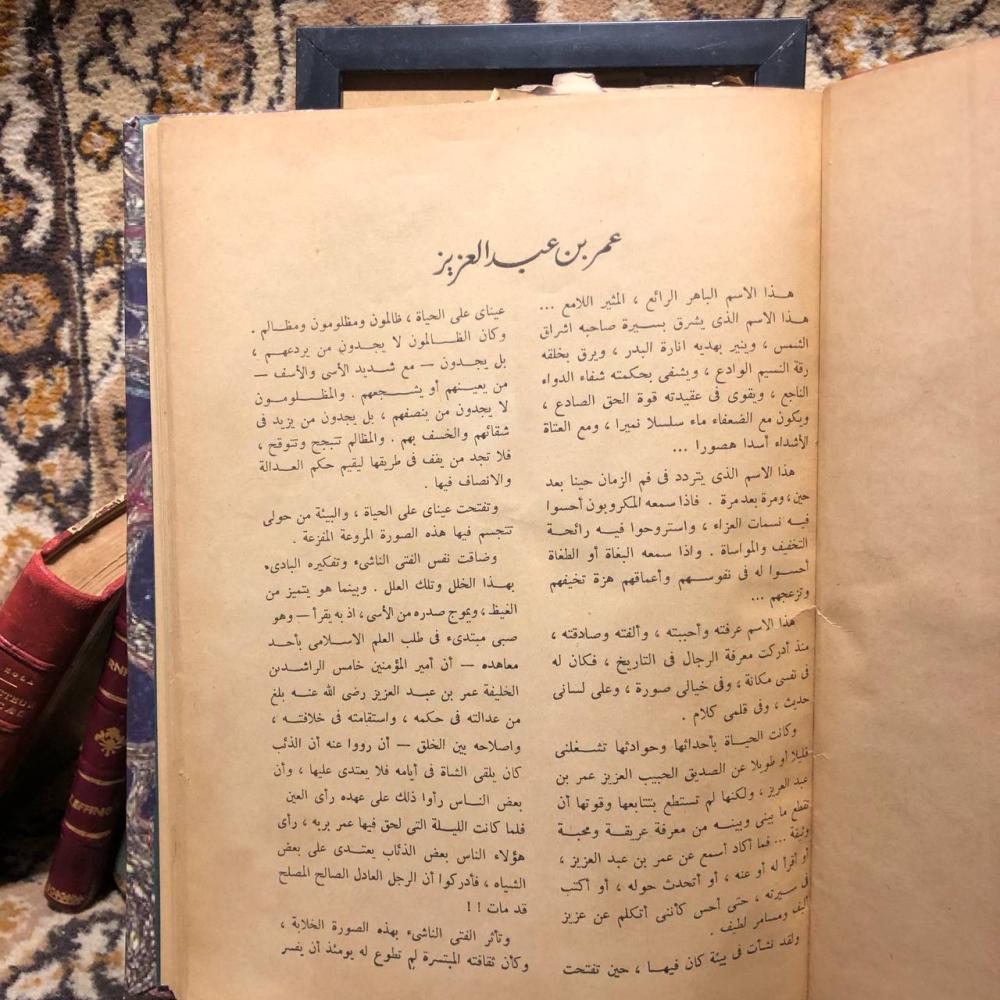 عمر بن عبد العزيز
هذا الاسم الباهر الرائع ، المثير اللامع ...
هذا الاسم الذى يشرق بسيرة صاحبه اشراق
الشمس ، وينير بهديه انارة البدر ، ويرق بخلقه
رقة النسيم الوادع ، ويشفى بحكمته شفاء الدواء
الناجع ، ويقوى فى عقيدته قوة الحق الصادع ،
ويكون مع الضعفاء ماء سلسلا نميرا ، ومع العتاة
الأشداء أسدا هصورا ...
هذا الاسم الذى يتردد فى فم الزمان حينا بعد
حين ، ومرة بعد مرة . فاذا سمعه المكروبون أحسوا
فيه نسمات العزاء ، واستروحوا فيه رائحة
التخفيف والمواساة . واذا سمعه البغاة أو الطغاة
أحسوا له فى نفوسهم وأعماقهم هزة تخيفهم
وتزعجهم ...
هذا الاسم عرفته وأحببته ، وألفته وصادقته ،
منذ أدركت معرفة الرجال فى التاريخ ، فكان له
فى نفسى مكانة ، وفى خيالى صورة ، وعلى لسانى
حديث ، وفى قلمى كلام .
وكانت الحياة بأحداثها وحوادثها تشغلنى
قليلا أو طويلا عن الصديق الحبيب العزيز عمر بن
عبد العزيز ، ولكنها لم تستطع بتتابعها وقوتها أن
تقطع ما بينى وبينه من معرفة عريقة ومحبة
وثيقة ... فما أكاد أسمع عن عمر بن عبد العزيز ،
أو أقرأ له أو عنه ، أو أتحدث حوله ، أو أكتب
فى سيرته ، حتى أحس كأننى أتكلم عن عزيز
أليف ومسامر لطيف .
ولقد نشأت فى بيئة كان فيها ، حين تفتحت
عيناى على الحياة ، ظالمون ومظلومون ومظالم .
وكان الظالمون لا يجدون من يردعهم ،
بل يجدون — مع شديد الأسى والأسف —
من يعينهم أو يشجعهم . والمظلومون
لا يجدون من ينصفهم ، بل يجدون من يزيد فى
شقائهم والخسف بهم . والمظالم تتبجح وتتوقح ،
فلا تجد من يقف فى طريقها ليقيم حكم العدالة
والانصاف فيها .
وتفتحت عيناى على الحياة ، والبيئة من حولى
تتجسم فيها هذه الصورة المروعة المفزعة .
وضاقت نفس الفتى الناشىء وتفكيره البادىء
بهذا الخلل وتلك العلل . وبينما هو يتميز من
الغيظ ، ويموج صدره من الأسى ، اذ به يقرأ — وهو
صبى مبتدىء فى طلب العلم الاسلامى بأحد
معاهده — أن أمير المؤمنين خامس الراشدين
الخليفة عمر بن عبد العزيز رضى الله عنه بلغ
من عدالته فى حكمه ، واستقامته فى خلافته ،
واصلاحه بين الخلق — أن رووا عنه أن الذئب
كان يلقى الشاة فى أيامه فلا يعتدى عليها ، وأن
بعض الناس رأوا ذلك على عهده رأى العين
فلما كانت الليلة التى لحق فيها عمر بربه ، رأى
هؤلاء الناس بعض الذئاب يعتدى على بعض
الشياه ، فأدركوا أن الرجل العادل الصالح المصلح
قد مات ! !
وتأثر الفتى الناشىء بهذه الصورة الخلابة ،
وكأن ثقافته المبتسرة لم تطوع له يومئذ أن يفسر